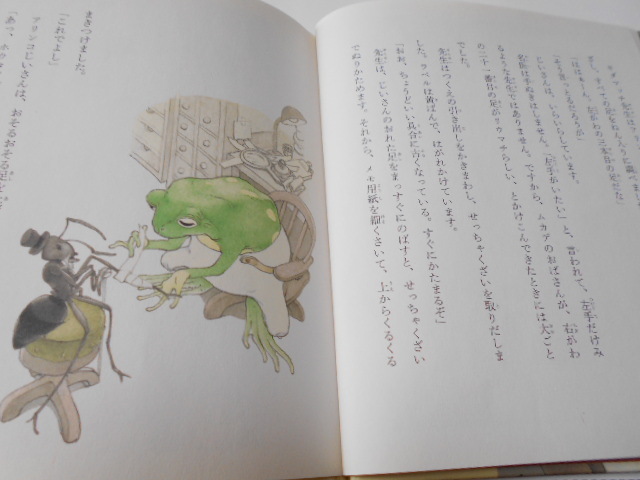 「ははぁーん、左がわの三番目の足だな」
じいさんは、いらいらしています。
名医は手ぬきはしません。「左手がいたい」と、言われて、左手だけみ
るような先生ではありません。ですから、ムカデのおばさんが、右がわ
の二十一番目の足がリウマチらしい、とかけこんできたときには大ごと
でした。
先生はつくえの引き出しをかきまわし、せっちゃくざいを取りだしま
した。ラベルは黄ばんで、はがれかけています。
「おお、ちょうどいい具合に古くなっている。すぐにかたまるぞ」
先生は、じいさんのおれた足をまっすぐにのばすと、せっちゃくざい
でぬりかためます。それから、メモ用紙を細くさいて、上からくるくる
まきつけました。
「これでよし」
アリンコじいさんは、おそるおそる足を
「あっ、ホ